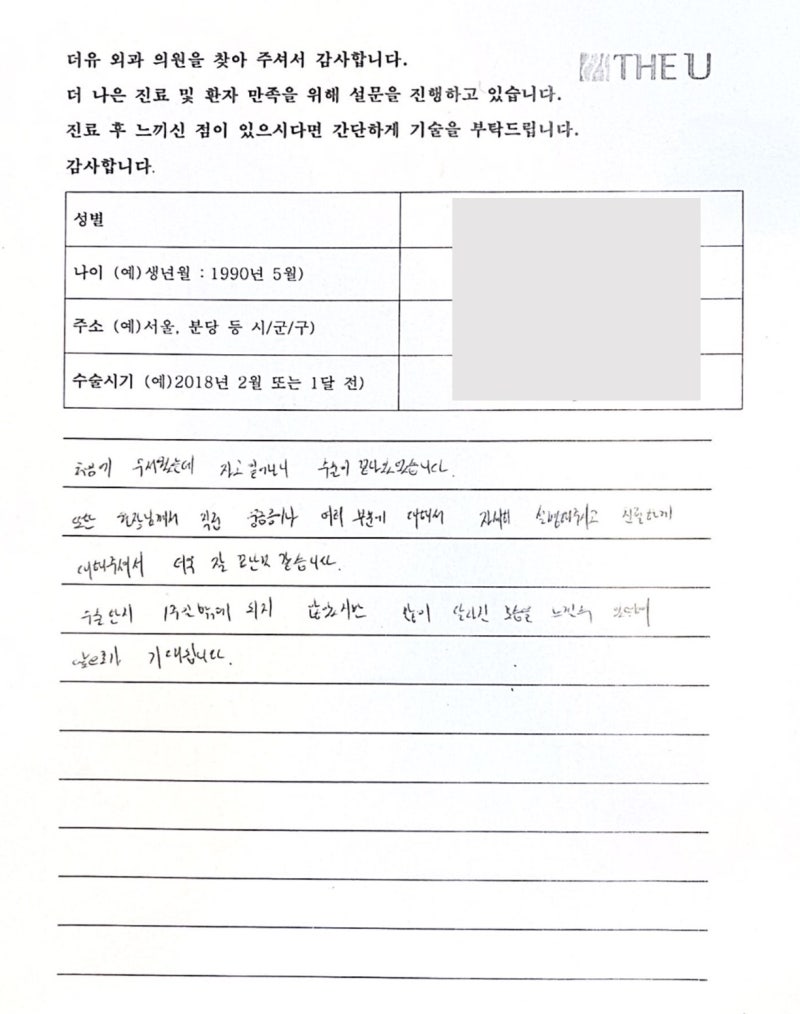 더유 외과 의원을 찾아 주셔서 감사합니다.
THE U
더 나은 진료 및 환자 만족을 위해 설문을 진행하고 있습니다.
진료 후 느끼신 점이 있으시다면 간단하게 기술을 부탁드립니다.
감사합니다.
성별
나이 (예)생년월 : 1990년 5월)
주소 (예)서울, 분당 등 시/군/구)
수술시기 (예)2018년 2월 또는 1달 전)
처음에 무서웠는데 자고 일어나니 수술이 끝나있었습니다.
또한 원장님께서 직접 궁금증이나 여러 부분에 대해서 자세히 설명해주시고 친절하게
대해주셔서 더욱 잘 된 같습니다.
수술한지 1주일밖에 되지 않았지만 많이 달라진 모습을 느낀
앞으로가 기대됩니다.